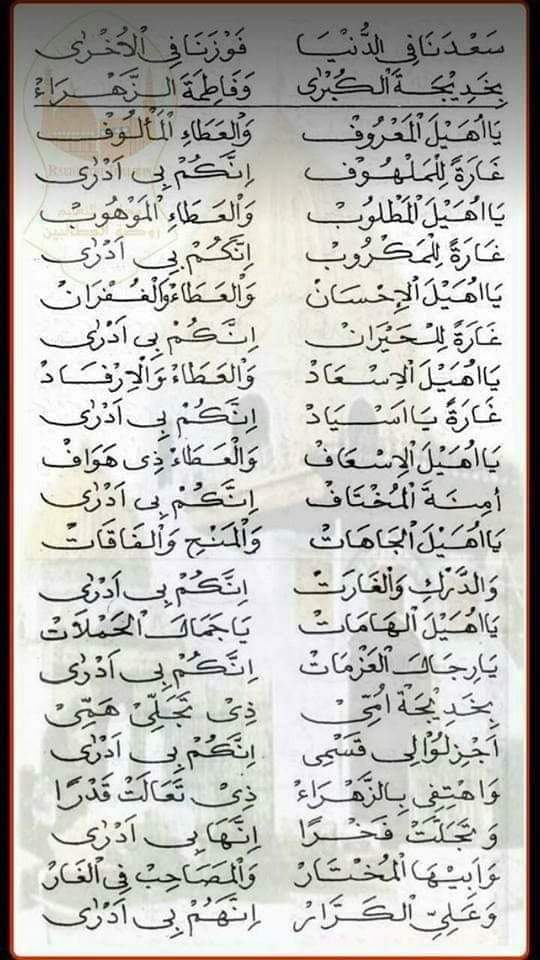 سَعْدَنَا فِي الدُّنْيَا فَوْزَنَا فِي الْأُخْرٰى
بِخَدِيْجَةَ الْكُبْرٰى وَفَاطِمَةَ الزَّهْرَاءْ
يَااُهَيْلَ الْمَعْرُوفْ وَالْعَطَاءِ الْمَأْلُوفْ
غَارَةً لِلْمَلْهُوفْ اِنَّكُمْ بِي اَدْرٰى
يَااُهَيْلَ الْمَطْلُوبْ وَالْعَطَاءِ الْمَوْهُوبْ
غَارَةً لِلْمَكْرُوبْ اِنَّكُمْ بِي اَدْرٰى
يَااُهَيْلَ الْاِحْسَانْ وَالْعَطَاءْ وَالْغُفْرَانْ
غَارَةً لِلْحَيْرَانْ اِنَّكُمْ بِي اَدْرٰى
يَااُهَيْلَ الْاِسْعَادْ وَالْعَطَاءْ وَالْاِرْفَادْ
غَارَةً يَااَسْيَادْ اِنَّكُمْ بِي اَدْرٰى
يَااُهَيْلَ الْاِسْعَافْ وَالْعَطَاءْ ذِي هَوَافْ
اَمِنَةَ الْمُخْتَافْ اِنَّكُمْ بِي اَدْرٰى
يَااُهَيْلَ الْجَاهَاتْ وَالْمَنْحِ وَالْفَاقَاتْ
وَالدَّرْكِ وَالْغَارَتْ اِنَّكُمْ بِي اَدْرٰى
يَااُهَيْلَ الْهَامَاتْ يَاجَمَالَ الْحَمْلَاتْ
يَارِجَالَ الْعَزْمَاتْ اِنَّكُمْ بِي اَدْرٰى
بِخَدِيْجَةْ اُمِّيْ ذِيْ تَجَلِّيْ هَمِّيْ
اَجْزِلُوْالِي قَسْمِي اِنَّكُمْ بِي اَدْرٰى
وَاهْتِفِي بِالزَّهْرَاءْ ذِيْ تَعَالَتْ قَدْرًا
وَتَجَلَّتْ فَخْرًا اِنَّهَا بِي اَدْرٰى
وَاَبِيْهَا الْمُخْتَارْ وَالْمَصَاحِبْ فِي الْغَارْ
وَعَلِيِّ الْكَرَّارْ اِنَّهُمْ بِي اَدْرٰى